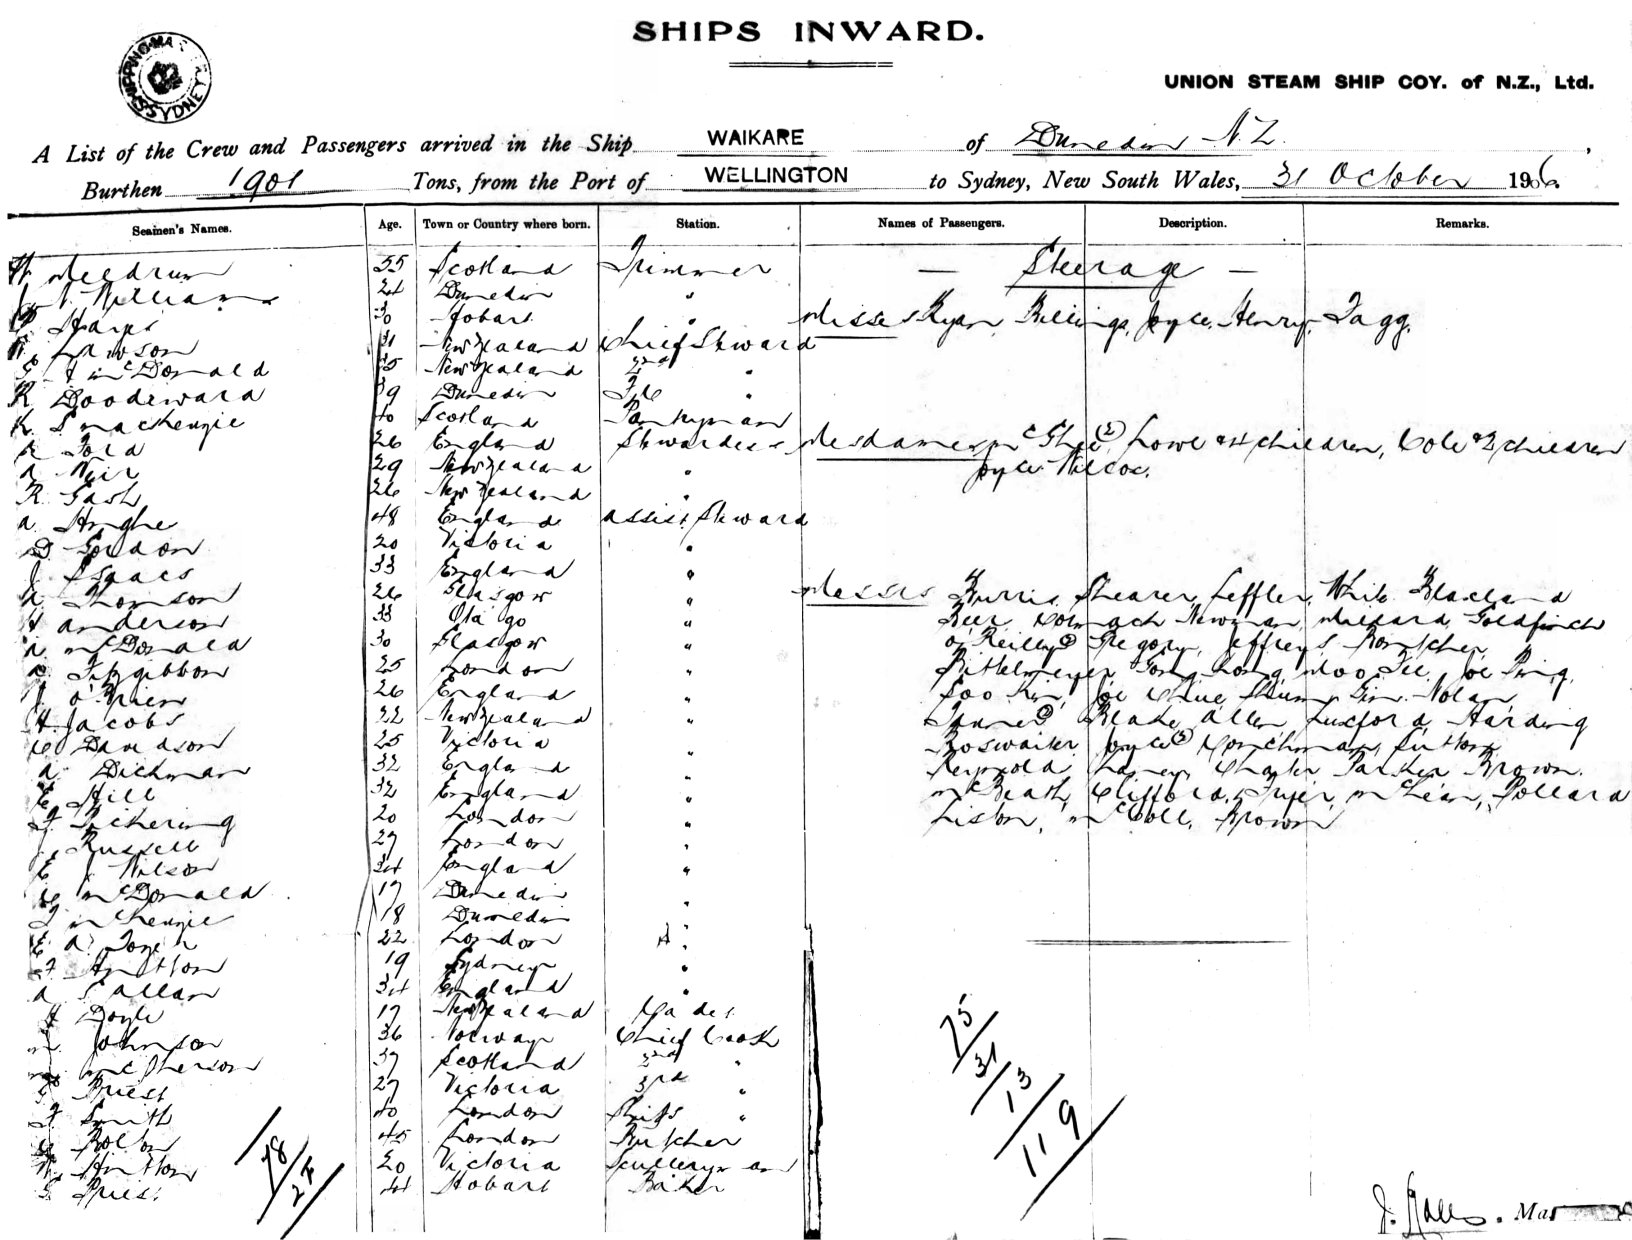 SHIPS INWARD.
SHIPPING MA SYDNEY
UNION STEAM SHIP COY. of N.Z., Ltd.
A List of the Crew and Passengers arrived in the Ship WAIKARE of Dunedin N.Z.,
Burthen 1901 Tons, from the Port of WELLINGTON to Sydney, New South Wales, 31 October 1906.
Seamen's Names. Age. Town or Country where born. Station. Names of Passengers. Description. Remarks.
Meldrum 55 Scotland Trimmer — Steerage —
Williams 24 Dunedin "
Harris 30 Hobart " Misses Ryan, Billings, Joyce, Henry, Tagg.
Lawson 31 New Zealand Chief Steward
McDonald 35 New Zealand 2nd "
R Goodeward 39 Dunedin "
K. S MacKenzie 40 Scotland Pantryman
Ford 26 England Stewardess Mesdames McGhee (2), Lowe & 4 children, Cole & 2 children
Weir 29 New Zealand " Joyce Wilcox.
R. Gash 26 New Zealand "
a. Hughe 48 England assist Steward
D Gordon 20 Victoria "
J Isaacs 33 England "
Thomson 26 Glasgow " Messrs Burris, Shearer, Leffler, White Blaxland
H anderson 33 Otago " Beer Cormack Newman, Millard, Goldfinch
a. McDonald 30 Glasgow " O'Reilly 2 Gregory, Jeffreys,
Fitzgibbon 25 London " Long
J O'Brien 26 England " Nolan,
H. Jacobs 22 New Zealand " Blake Allen Luxford Harding
C Davidson 25 Victoria " Joyce 2 Sutton
a. Dickman 32 England " Reynolds Parker Brown.
E Hill 32 England " McBeath, Clifford, Fryer, McLean, Pollard
F. Pickering 20 London " Liston, McColl, Brown
J. Russell 27 London "
E J Wilson 34 England "
McDonald 17 Dunedin "
McKenzie 18 Dunedin "
E a. 22 London "
F. Hutton 19 Sydney "
a Callan 34 England "
H Doyle 17 New Zealand Cadet
Johnson 36 Norway Chief Cook
McPherson 37 Scotland 2nd "
Priest 27 Victoria 3rd "
F. Smith 40 London Ships "
Bolton 45 London Butcher
W. Hutton 20 Victoria Scullery man
Priest 44 Hobart Baker
78/27
75/31/13
119
J. Rolls. Mas